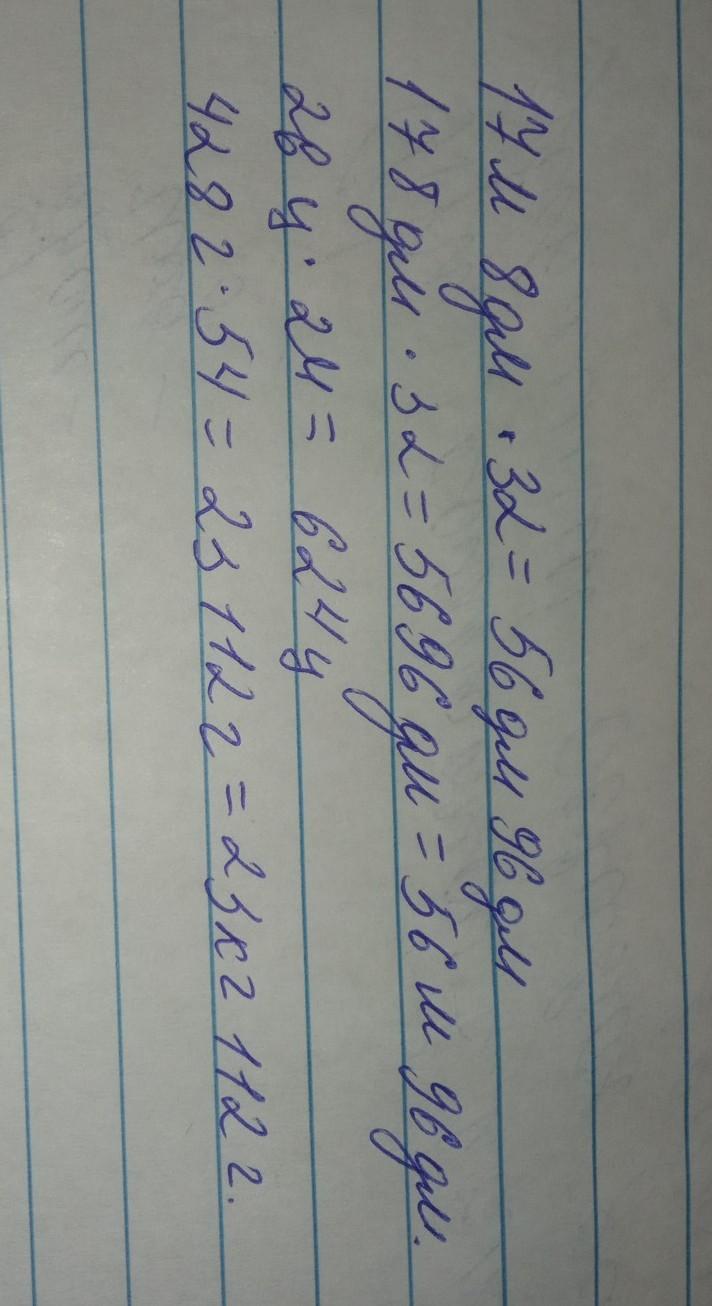 17 м 8 дм · 32 = 56 дм 96 дм
178 дм · 32 = 5696 дм = 56 м 96 дм.
26 ц · 24 = 624 ц
428 г · 54 = 23112 г = 23 кг 112 г.